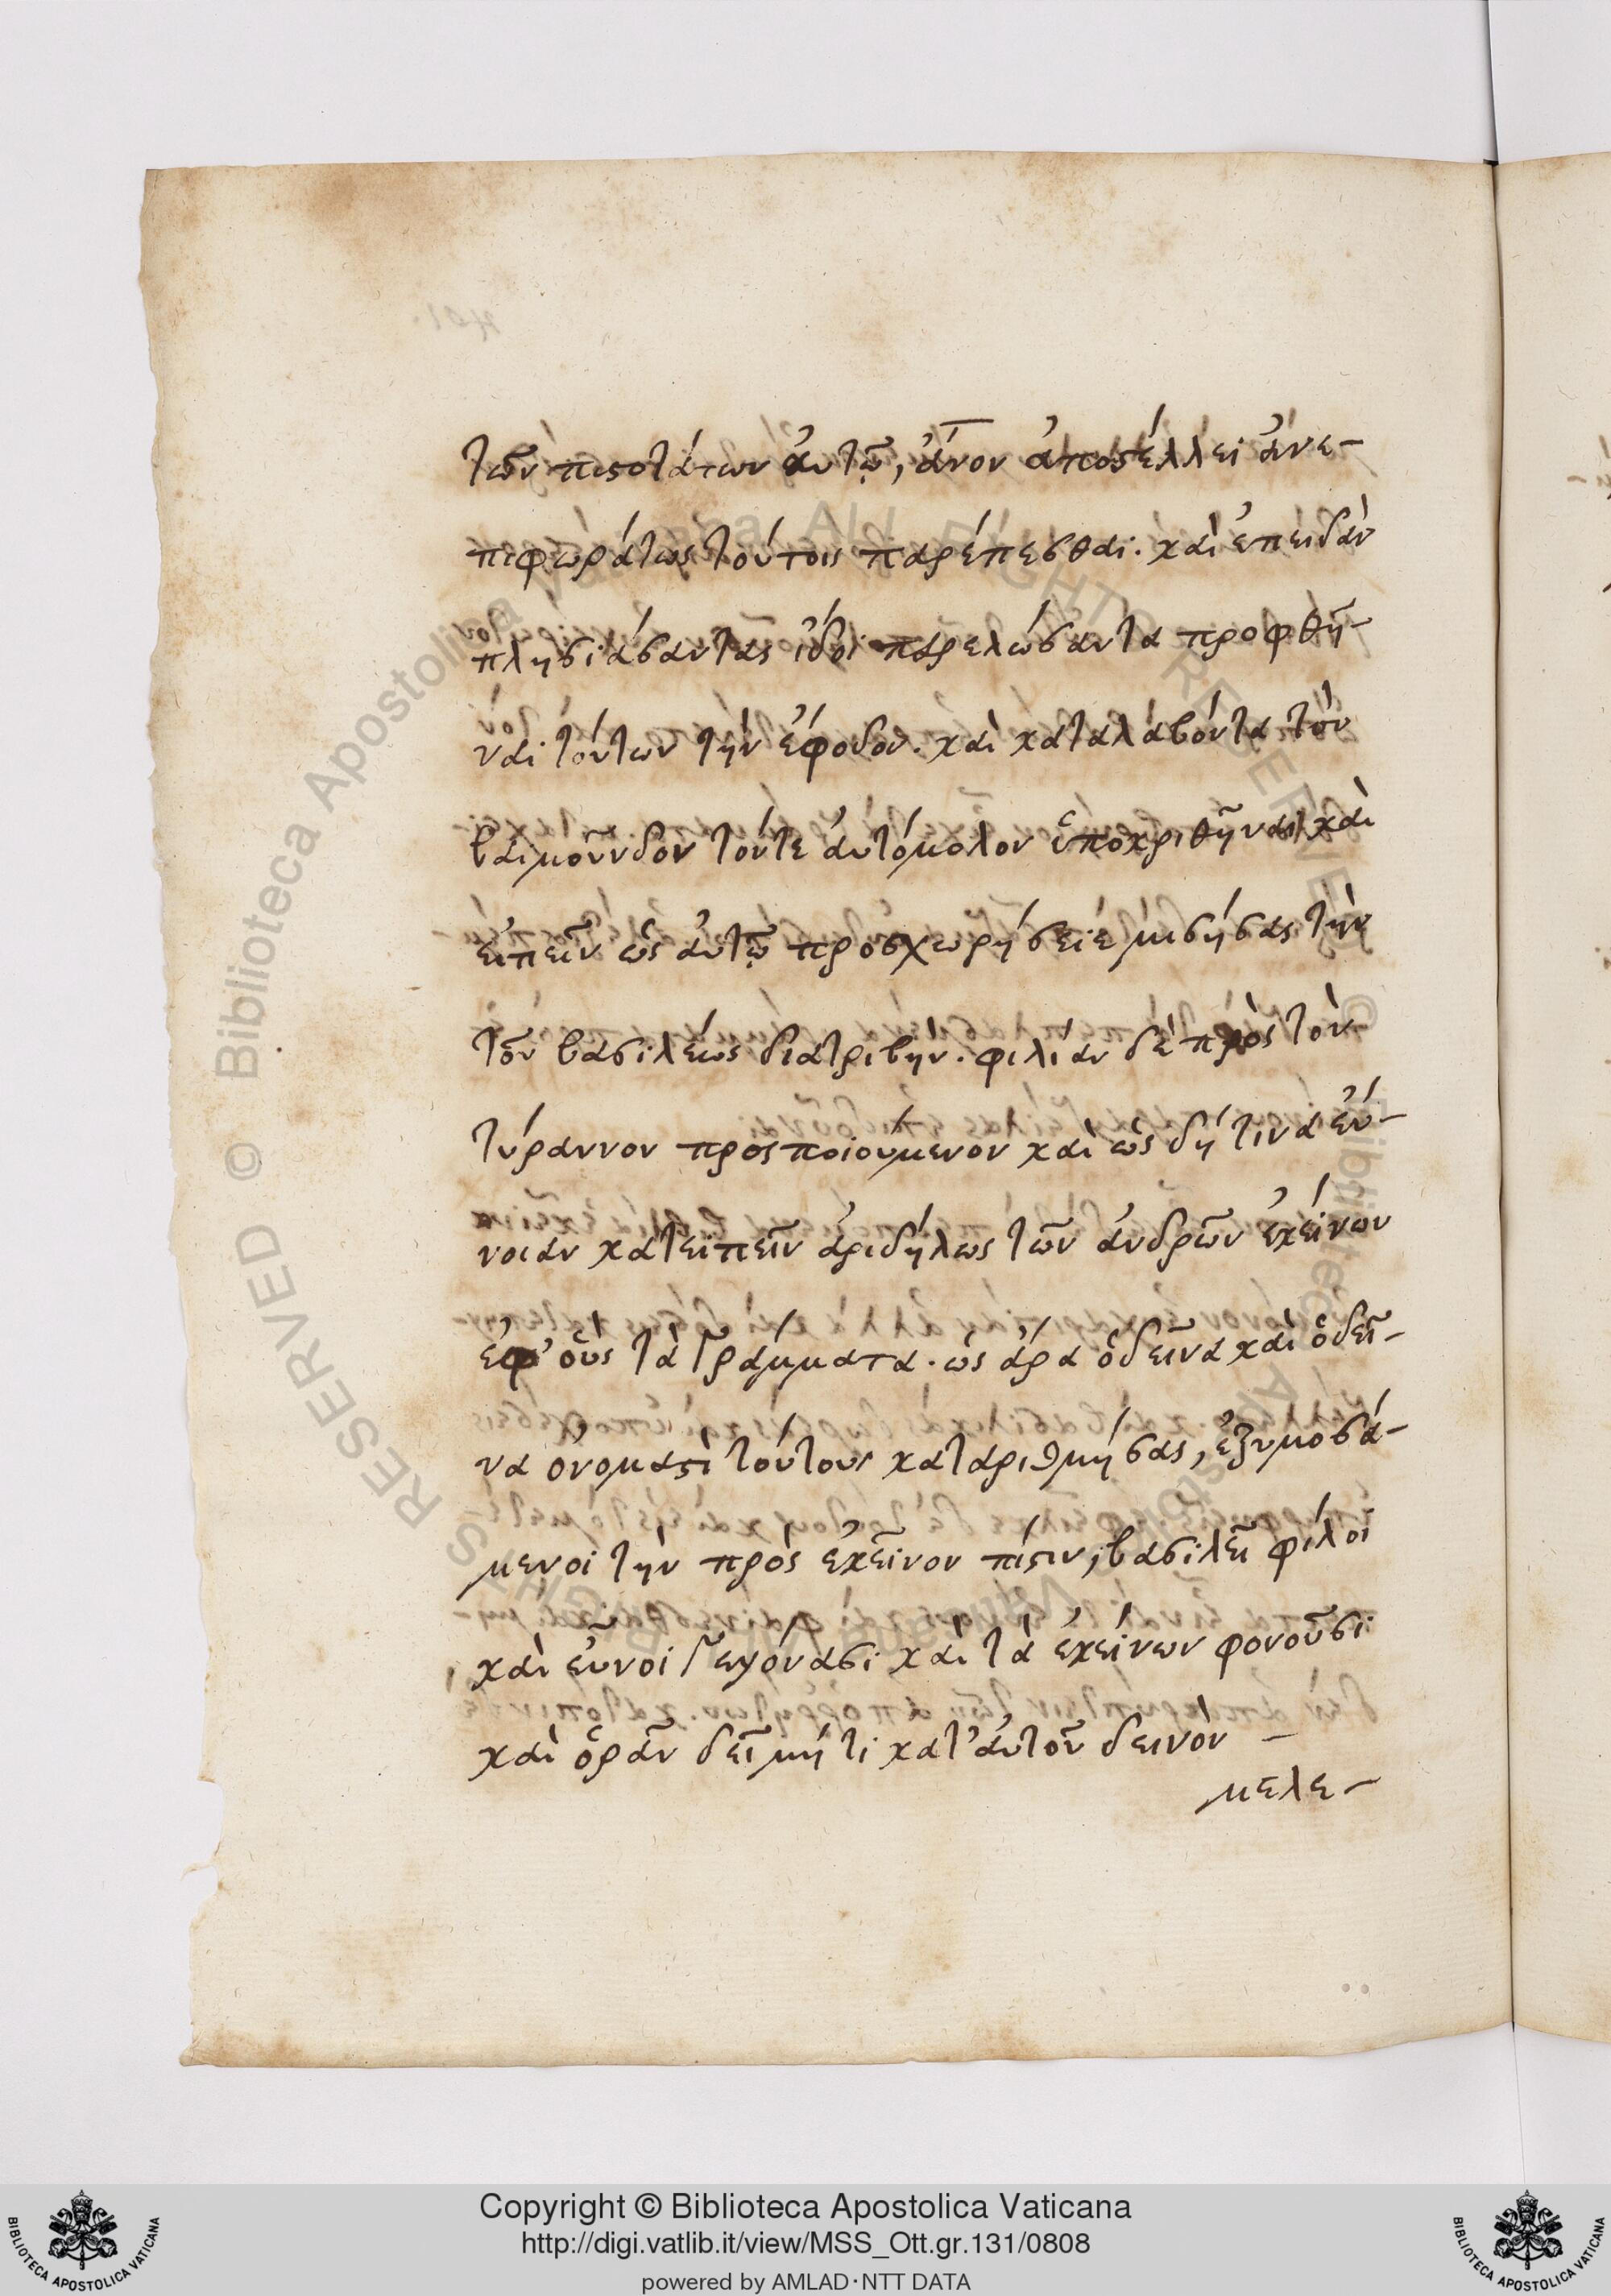 τῶν πιστοτάτων αὐτῷ, ἄνον ἀποστέλλει ἀνε-
πιφωράτως τούτοις παρέπεσθαι. καὶ ἐπειδὰν
πλησιάσαντας ἴδοι παρελάσαντα προφθῆ-
ναι τούτων τὴν ἔφοδον. καὶ καταλαβόντα τὸν
βαϊμοῦνδον τόντε αὐτόμολον ὑποκριθῆναι καὶ
εἰπεῖν ὡς αὐτῷ προσχωρήσειε μισήσας τὴν
τοῦ βασιλέως διατριβήν. φιλίαν δὲ πρὸς τὸν
τύραννον προσποιούμενον καὶ ὡς δή τινα εὔ-
νοιαν κατειπεῖν ἀριδήλως τῶν ἀνδρῶν ἐκείνων
ἐφ' οὓς τὰ γράμματα. ὡς ἄρα ὁδεῖνα καὶ ὁδεῖ-
να ὀνομαστὶ τούτους καταριθμήσας, ἐξυμοσά-
μενοι τὴν πρὸς ἐκεῖνον πίστιν, βασιλεῖ φίλοι
καὶ εὖνοι γεγόνασι καὶ τὰ ἐκείνων φονοῦσι
καὶ ὁρᾶν δεῖ μή τι κατ' αὐτοῦ δεινὸν -
μελε-
© Biblioteca Apostolica Vaticana ALL RIGHTS RESERVED
Copyright © Biblioteca Apostolica Vaticana
http://digi.vatlib.it/view/MSS_Ott.gr.131/0808
powered by AMLAD·NTT DATA
BIBLIOTECA APOSTOLICA VATICANA
BIBLIOTECA APOSTOLICA VATICANA